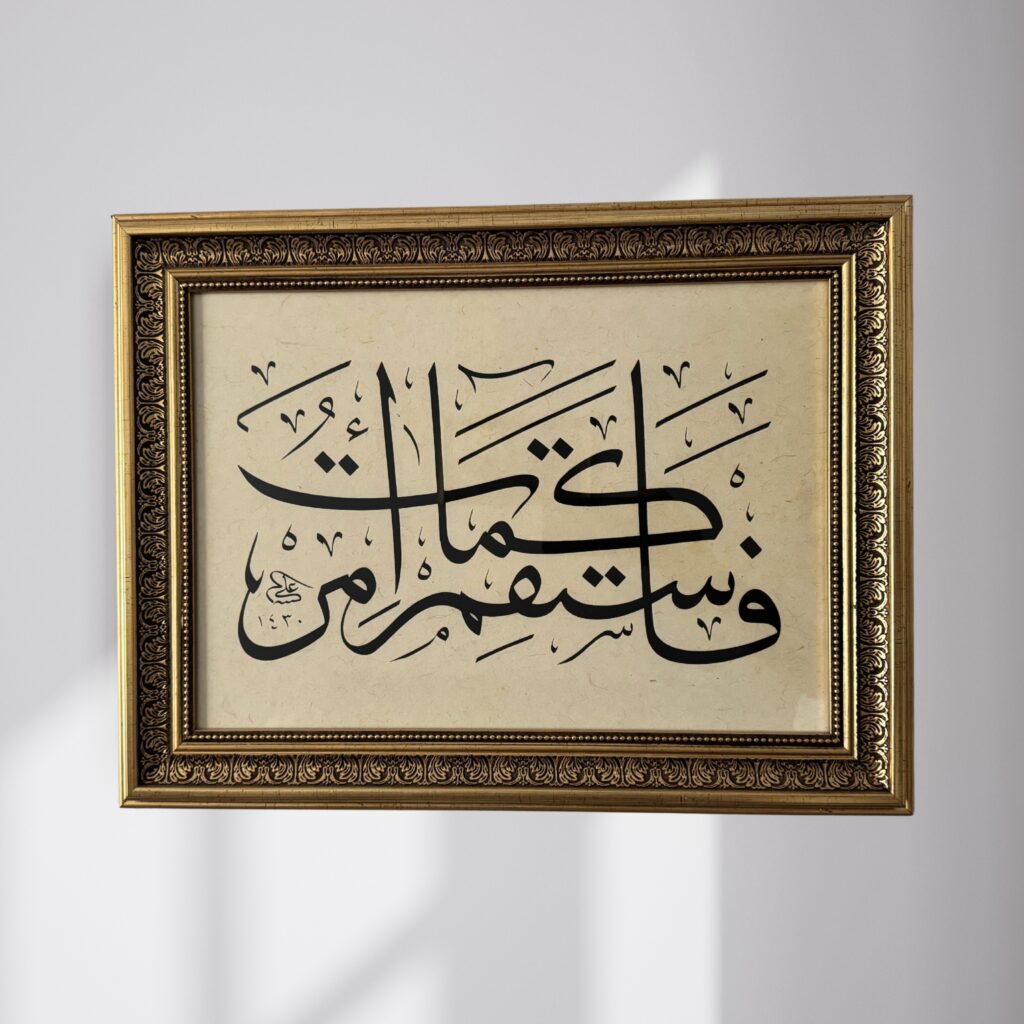 فَاسْتَقِمْ كَمَا أُمِرْتَ
علي
١٤٣٠